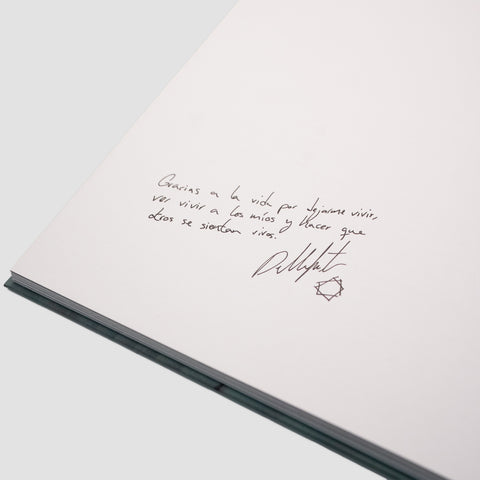 Gracias a la vida por dejarme vivir,
ver vivir a los míos y hacer que
otros se sientan vivos.